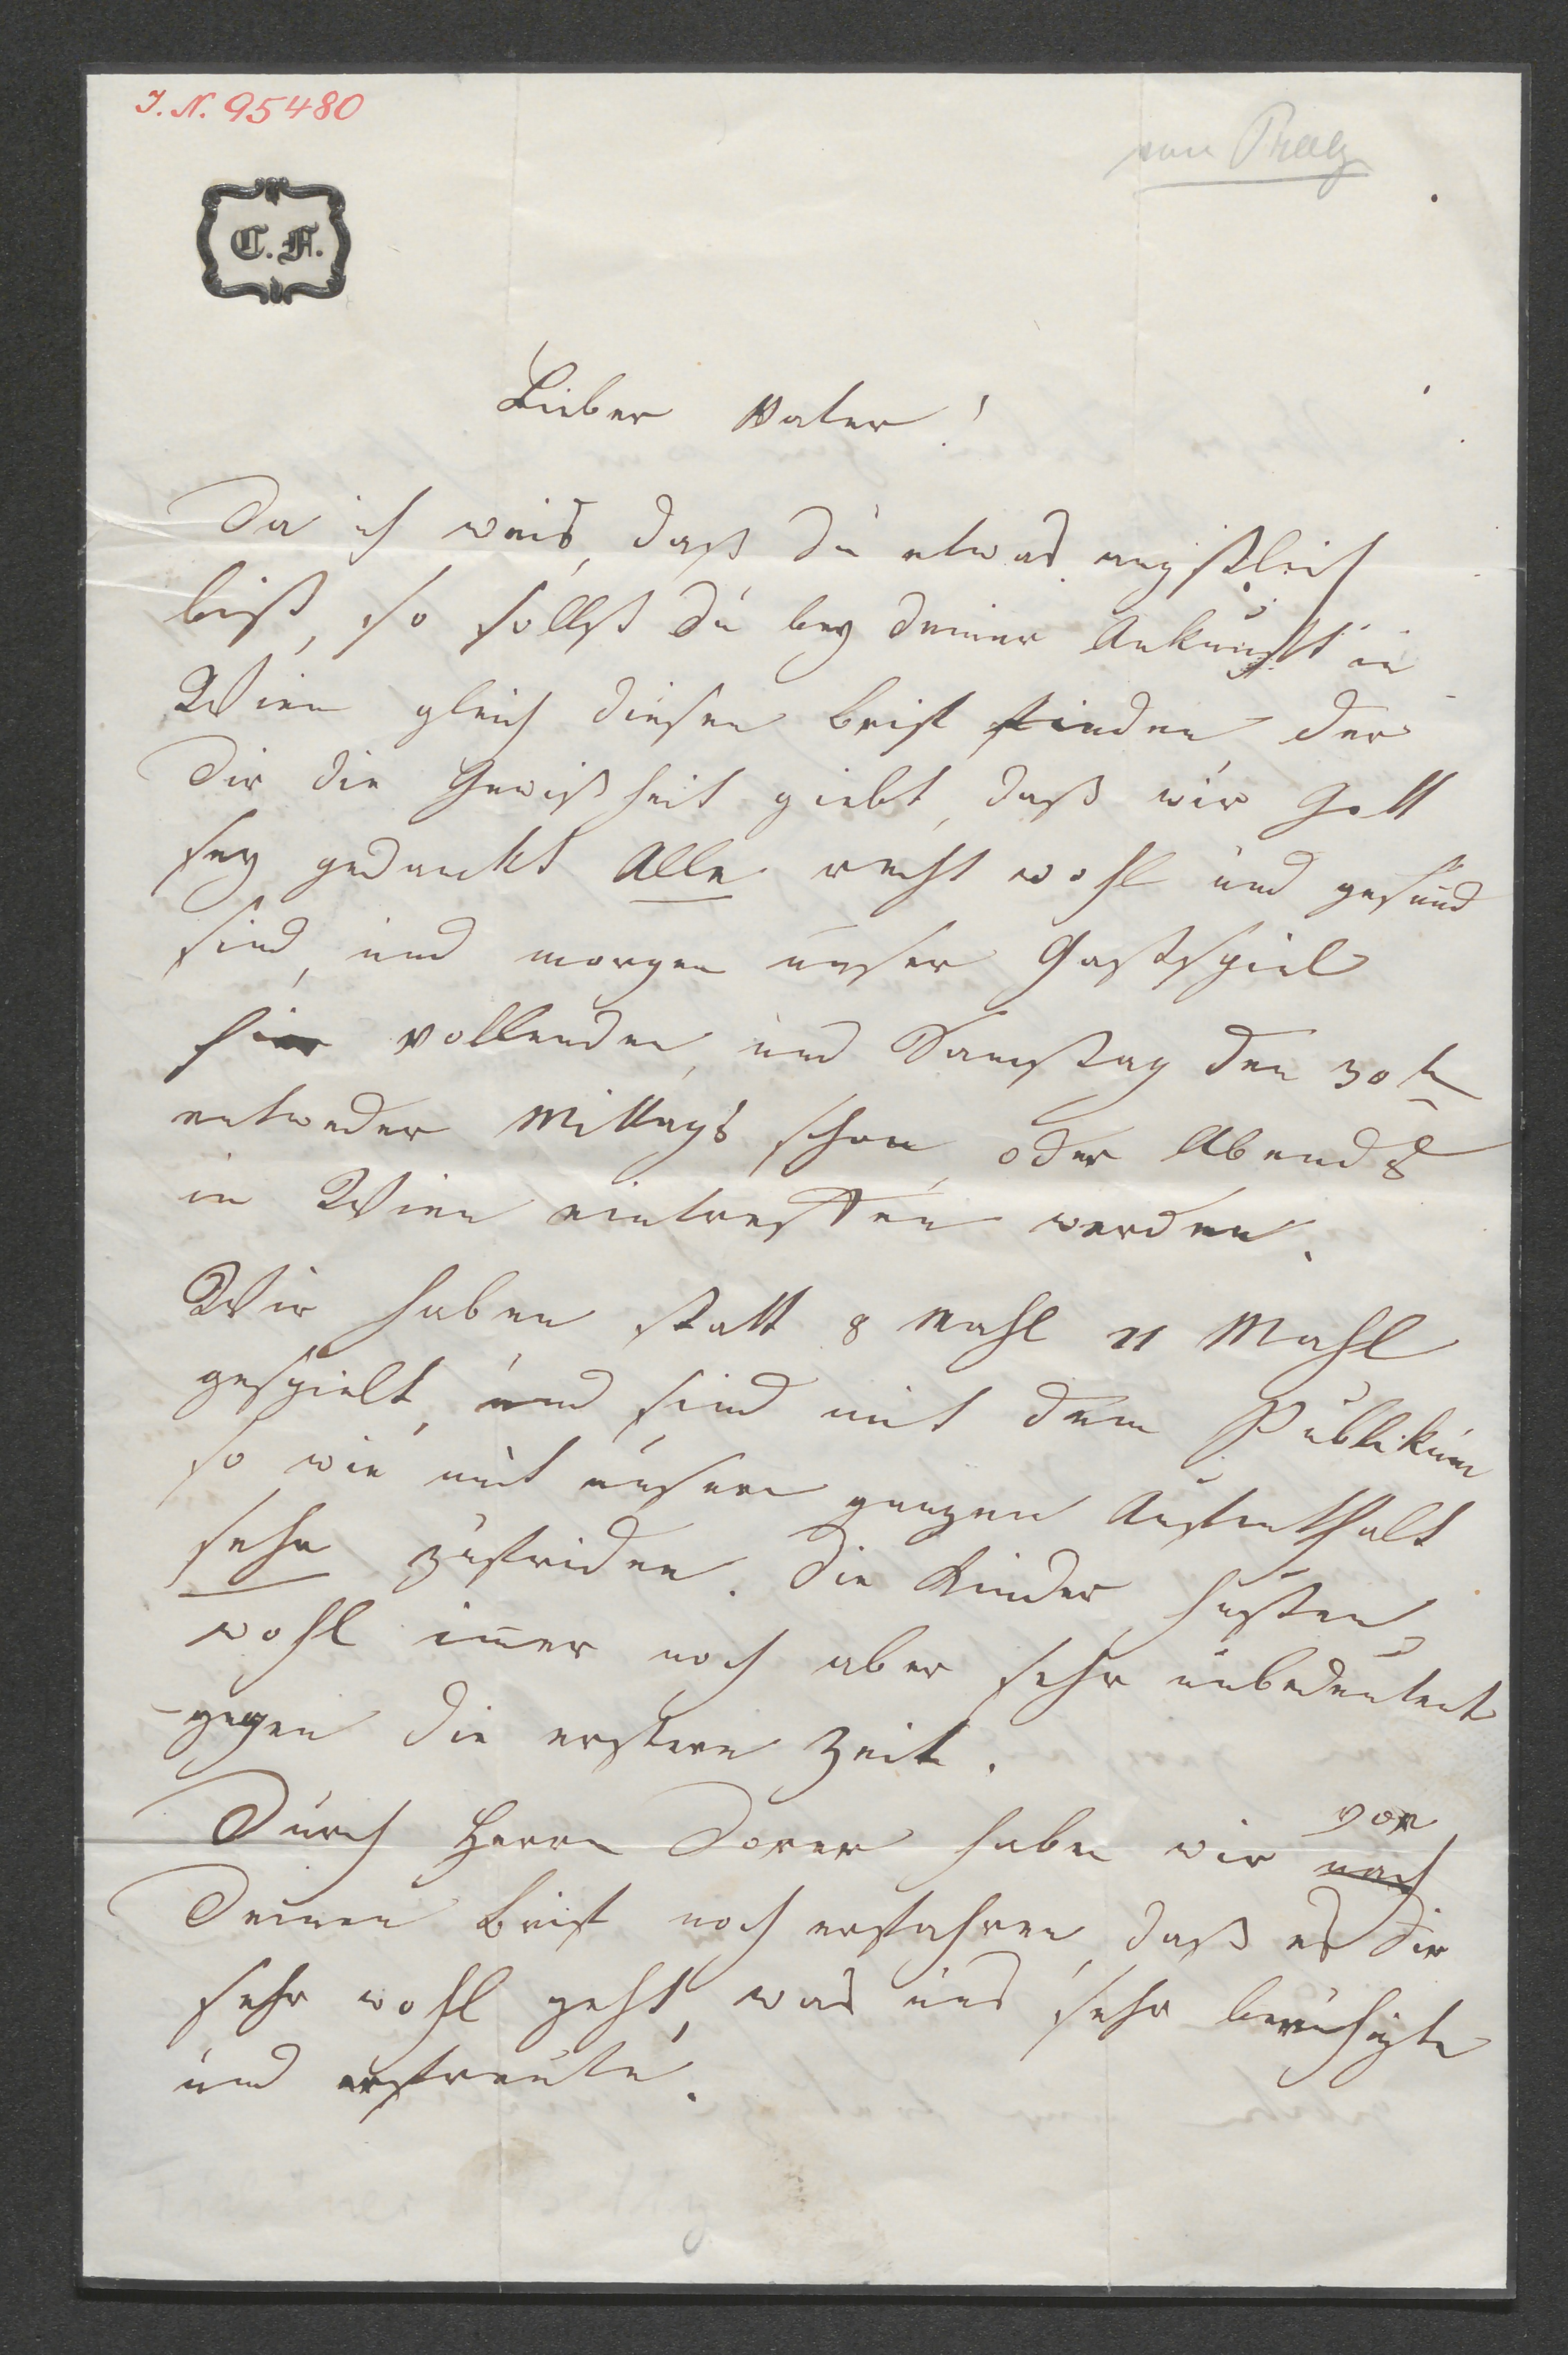 I. N. 95480
von Prag
C. F.
Lieber Vater!
Da ich weis, daß du etwas angstlich
bist, so sollst du bey deiner Ankunft in
Wien gleich diesen Brief finden der
Dir die Gewißheit giebt, daß wir Gott
sey gedankt Alle recht wohl und gesund
sind, und morgen unser Gastspiel
hier vollenden, und Samstag den 30t
entweder Mittags schon, oder Abends
in Wien eintreffen werden.
Wir haben statt 8 Mahl 11 Mahl
gespielt, und sind mit dem Publikum
so wie mit unsern ganzen Aufenthalt
sehr zufriden. Die Kinder husten
wohl immer noch aber sehr unbedeutent
gegen die erstere Zeit.
Durch Herrn Dorer haben wir nach vor
Deinen Brief noch erfahren, daß es Dir
sehr wohl geht, was uns sehr beruhigte
und erfreute.